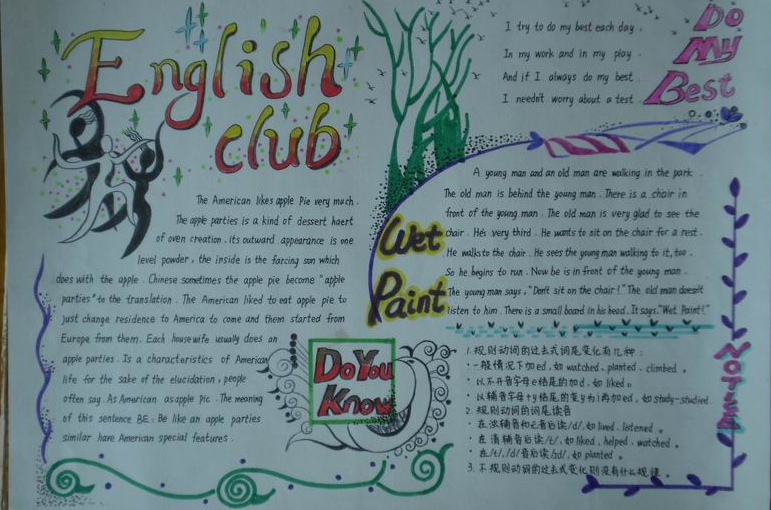 English
club
The American likes apple Pie very much.
The apple parties is a kind of dessert haert
of oven creation. its outward appearance is one
level powder, the inside is the farcing son which
does with the apple. Chinese sometimes the apple pie become "apple
parties" to the translation. The American liked to eat apple pie to
just change residence to America to come and them started from
Europe from them. Each housewife usually does an
apple parties. Is a characteristics of American
life for the sake of the elucidation, people
often say. As American as apple pic. The meaning
of this sentence BE: Be like an apple parties
similar hare American special features.
Do You
Know
I try to do my best each day.
In my work and in my play.
And if I always do my best.
I needn't worry about a test.
Do
My
Best
Wet
Paint
A young man and an old man are walking in the park.
The old man is behind the young man. There is a chair in
front of the young man. The old man is very glad to see the
chair. He's very third. He wants to sit on the chair for a rest.
He walks to the chair. He sees the young man walking to it, too.
So he begins to run. Now be is in front of the young man.
The young man says, "Don't sit on the chair!" The old man doesn't
listen to him. There is a small board in his bead. It says, "Wet Paint!"
1. 规则动词的过去式词尾变化有几种:
· 一般情况下加ed, 如 watched, planted, climbed。
· 以不开音字母e结尾的加d, 如 liked。
· 以辅音字母+y结尾的变y为i再加ed, 如 study-studied
2. 规则动词的词尾读音
· 在浊辅音和元音后读/d/, 如 lived, listened。
· 在清辅音后读/t/, 如 liked, helped, watched。
· 在/t/, /d/音后读/id/, 如 planted。
3. 不规则动词的过去式变化则没有什么规律。